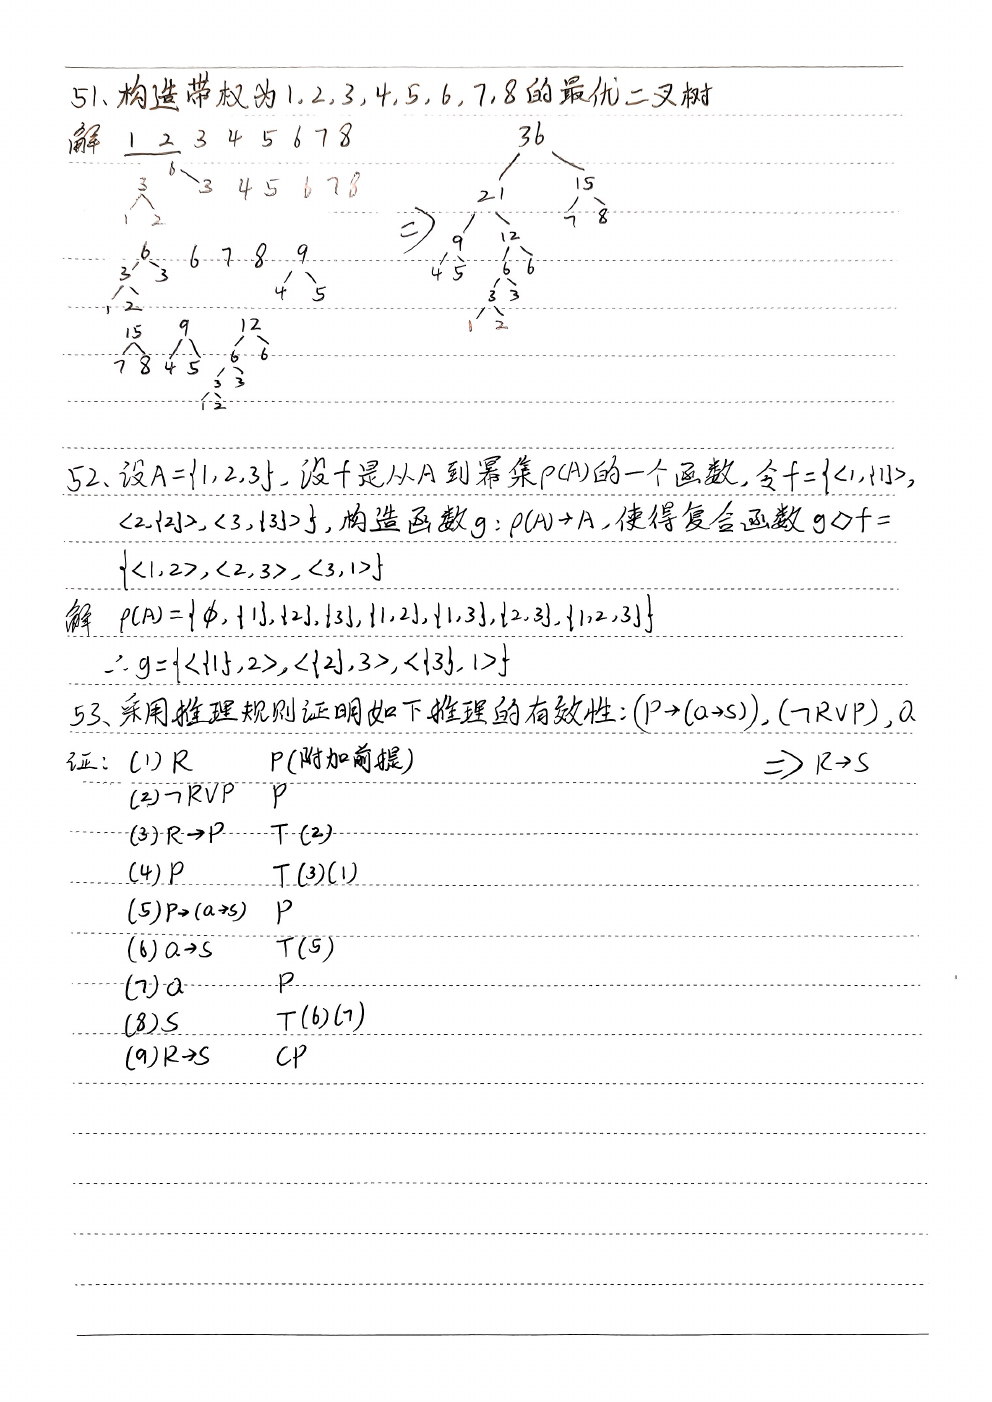 51、构造带权为1,2,3,4,5,6,7,8的最优二叉树
解 1 2 3 4 5 6 7 8
6
3 3 4 5 6 7 8
1 2
6 6 7 8 9
3 3 4 5
1 2
15 9 12
7 8 4 5 6 6
3 3
1 2
⇒
36
21 15
9 12 7 8
4 5 6 6
3 3
1 2
52、设A={1,2,3},设f是从A到幂集ρ(A)的一个函数,令f={<1,{1}>,
<2,{2}>,<3,{3}>},构造函数g:ρ(A)→A,使得复合函数g◇f=
{<1,2>,<2,3>,<3,1>}
解 ρ(A)={∅,{1},{2},{3},{1,2},{1,3},{2,3},{1,2,3}}
∴g={<{1},2>,<{2},3>,<{3},1>}
53、采用推理规则证明如下推理的有效性:(P→(Q→S)),(¬R∨P),Q
⇒ R→S
证: (1) R P(附加前提)
(2)¬R∨P P
(3)R→P T (2)
(4) P T(3)(1)
(5)P→(Q→S) P
(6)Q→S T(5)
(7)Q P
(8)S T(6)(7)
(9)R→S CP